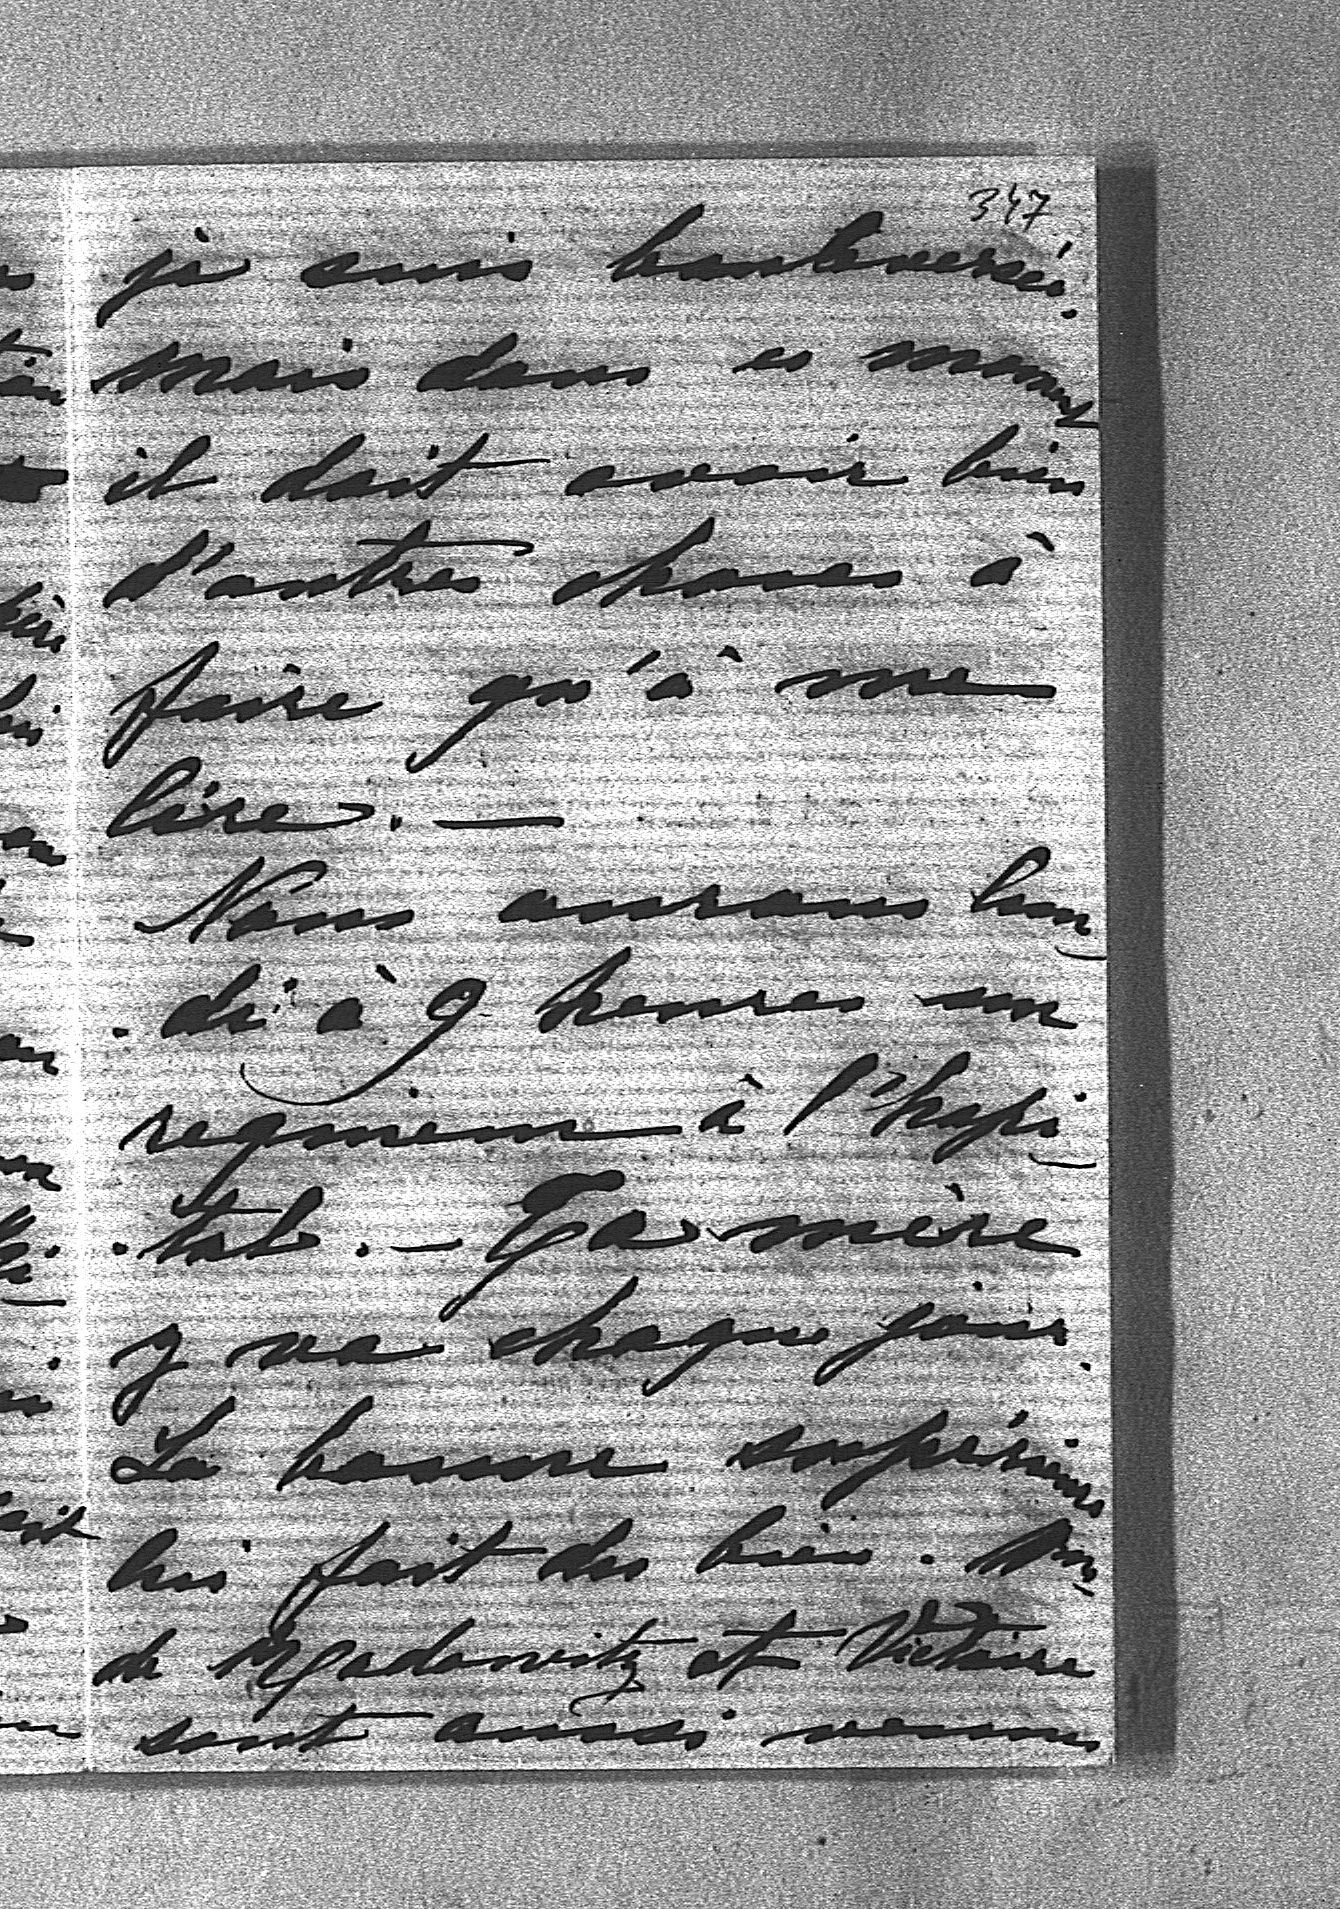 347
je suis bouleversé.
Mais dans ce moment
il doit avoir bien
d'autres choses à
faire qu'à me
lire. —
Nous aurons lun
di à 9 heures un
requiem à l'hopi
tal. — Ta mère
y va chaque jour.
La bonne supérieure
lui fait du bien. Mme
de et Victoire
sont aussi venues